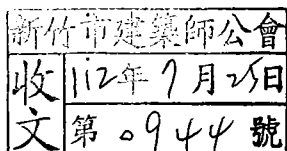 新竹市建築師公會
收文
112年7月25日
第0944號